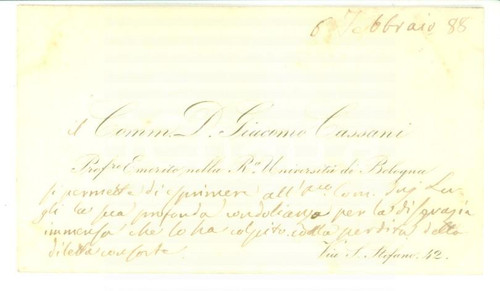 6 Febbraio 88
il Comm. D. Giacomo Cassani
Profre. Emerito nella Ra. Università di Bologna
si permette di esprimere all' Com. Ing. Lu-
gli la sua profonda condoglianza per la disgrazia
immensa che lo ha colpito colla perdita della
diletta consorte.
Via S. Stefano. 42.